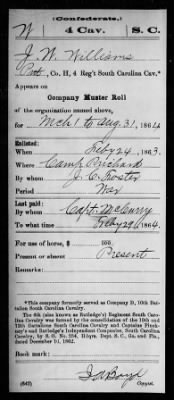 (Confederate.)
W 4 Cav. S. C.
J. W. Williams
Pvt, Co. H, 4 Reg't South Carolina Cav.*
Appears on
Company Muster Roll
of the organization named above,
for Mch 1 to Aug. 31, 1864
Enlisted:
When Feby 24, 1863.
Where Camp Prichard
By whom J. C. Foster
Period War
Last paid:
By whom Capt. McCurry
To what time Feby 29, 1864.
For use of horse, $ 100.
Present or absent Present
Remarks:
*This company formerly served as Company D, 10th Battalion South Carolina Cavalry.
The 4th (also known as Rutledge's) Regiment South Carolina Cavalry was formed by the consolidation of the 10th and 12th Battalions South Carolina Cavalry and Captains Pinckney's and Rutledge's Independent Companies, South Carolina Cavalry, by S. O. No. 254, Hdqrs. Dept. S. C., Ga. and Fla., dated December 16, 1862.
Book mark:
(642)
Copyist.